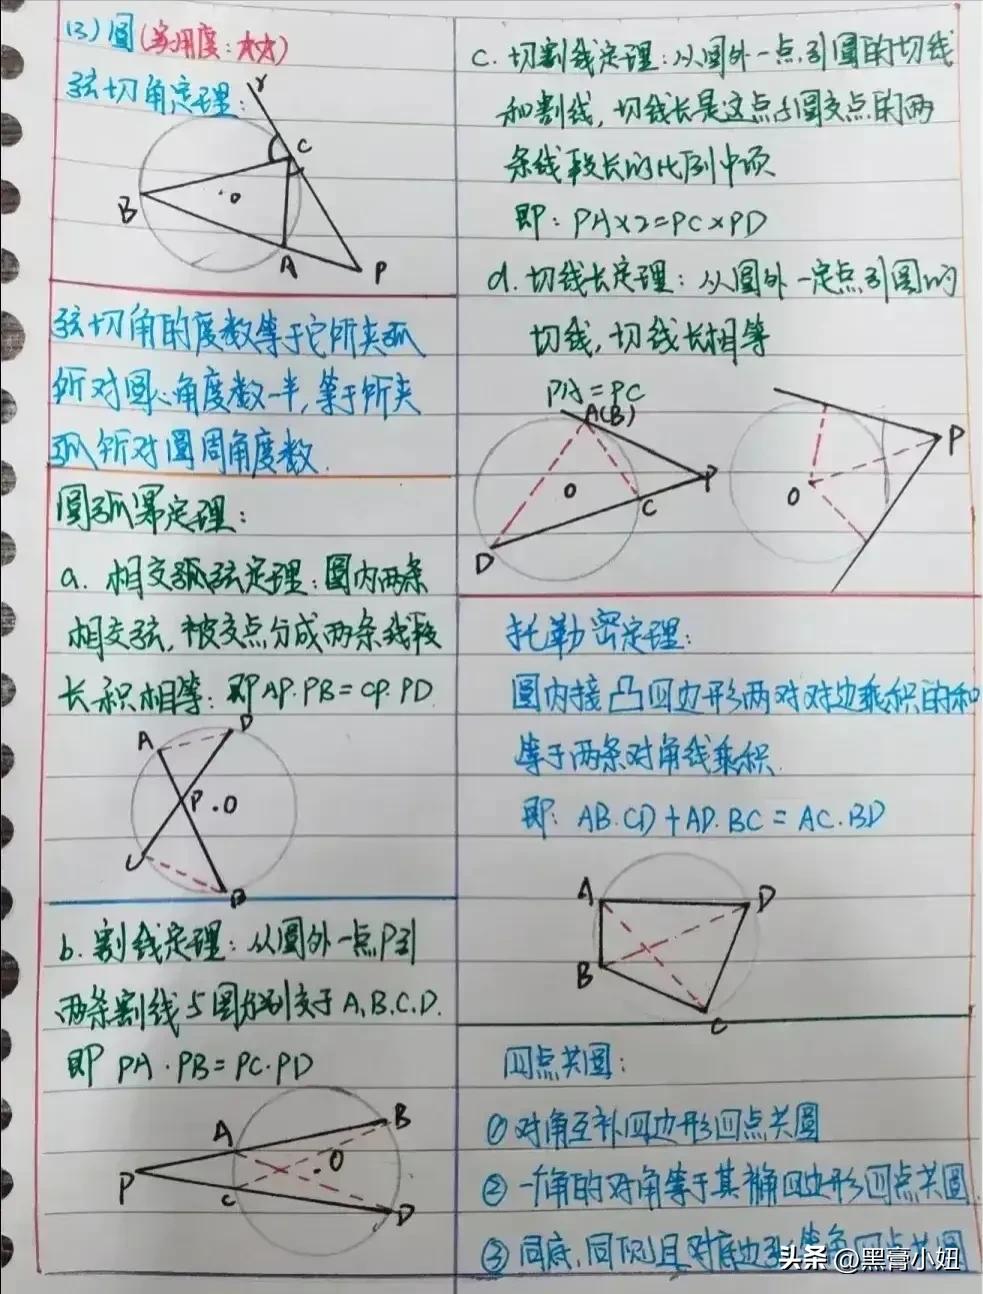 (3) 圆(实用度:大大)
弦切角定理:
Y
C
B
O
A
P
弦切角的度数等于它所夹弧
所对圆心角度数一半,等于所夹
弧所对圆周角度数.
圆弧幂定理:
a. 相交弧弦定理:圆内两条
相交弦,被交点分成两条线段
长积相等:即AP·PB=CP·PD
A
D
P
O
C
B
b. 割线定理:从圆外一点P引
两条割线与圆分别交于A,B,C,D.
即 PA·PB=PC·PD
A
B
P
O
C
D
c. 切割线定理:从圆外一点引圆的切线
和割线,切线长是这点与圆交点的两
条线段长的比例中项
即:PA×2=PC×PD
d. 切线长定理:从圆外一定点引圆的
切线,切线长相等
PA=PC
A(B)
O
P
C
D
P
O
托勒密定理:
圆内接凸四边形两对对边乘积的和
等于两条对角线乘积.
即:AB·CD+AD·BC=AC·BD
A
D
B
C
四点共圆:
①对角互补四边形四点共圆
②一角的对角等于其补角四边形四点共圆
③同底,同侧且对底边张 四点共圆
头条 @黑膏小妞